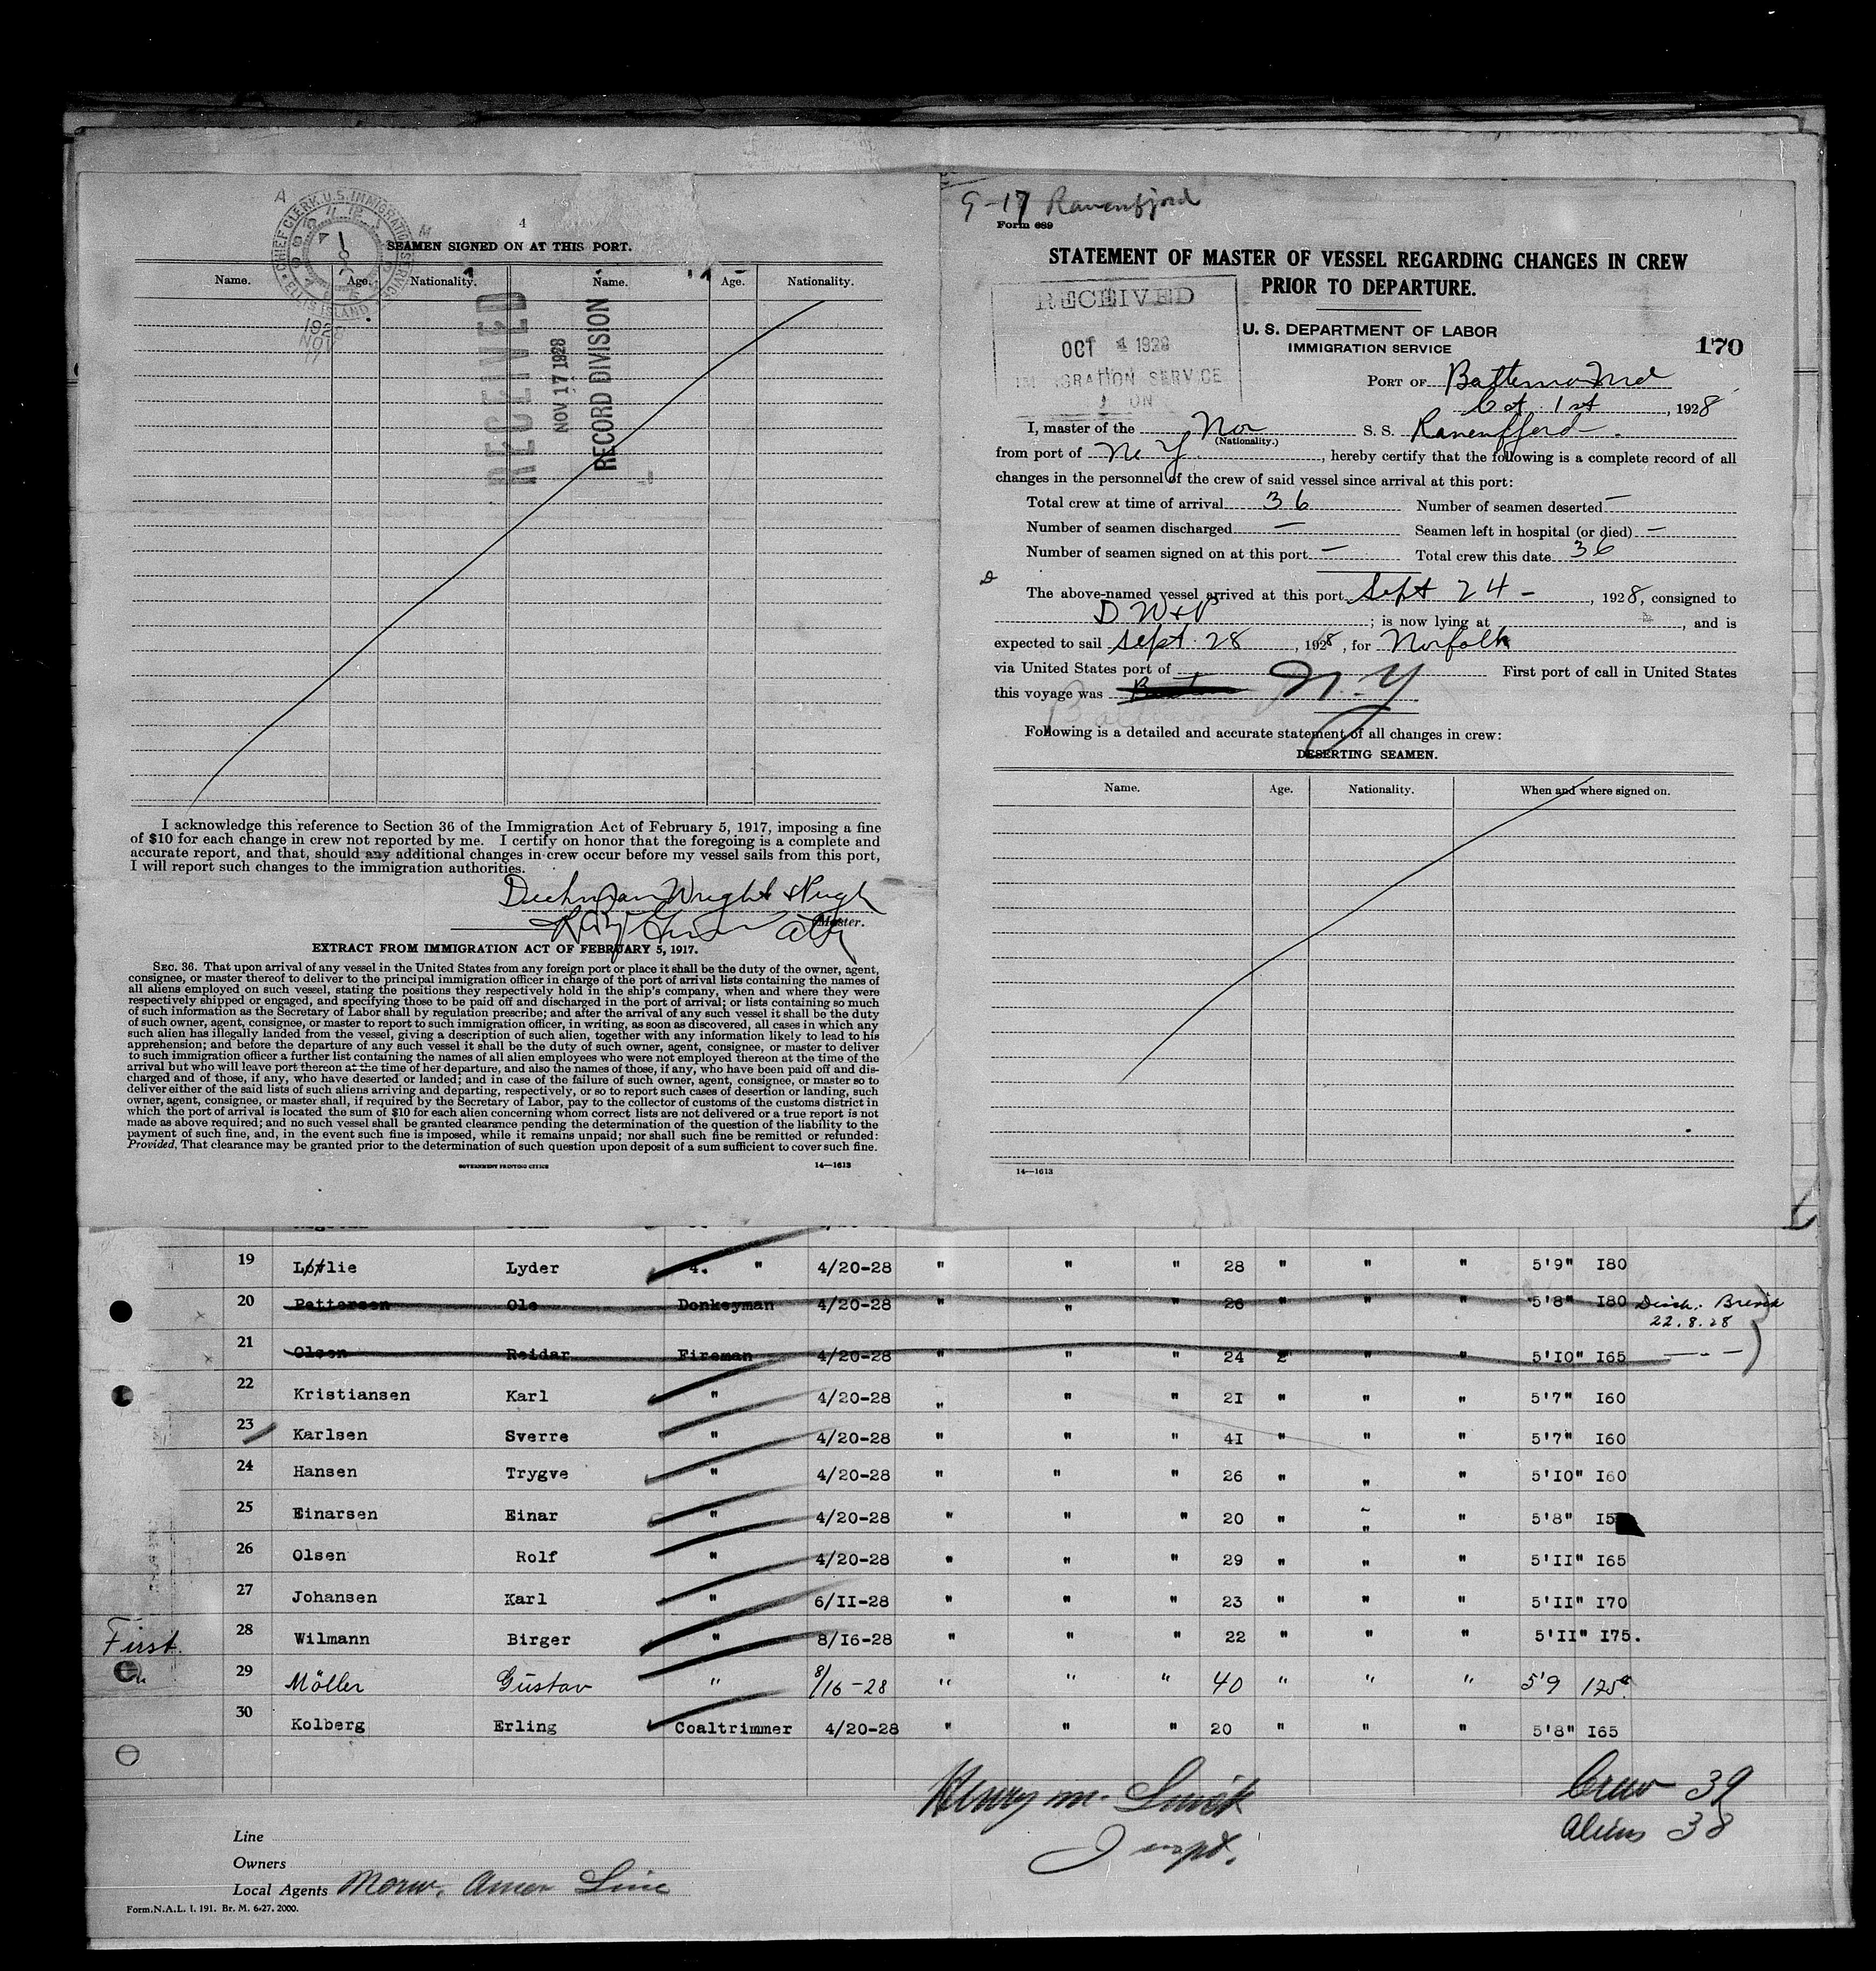 4
SEAMEN SIGNED ON AT THIS PORT.
Name. Age. Nationality. Name. Age. Nationality.
CHIEF CLERK U.S. IMMIGRATION SERVICE
ELLIS ISLAND
1928
NOV
17
RECEIVED
NOV 17 1928
RECORD DIVISION
I acknowledge this reference to Section 36 of the Immigration Act of February 5, 1917, imposing a fine
of $10 for each change in crew not reported by me. I certify on honor that the foregoing is a complete and
accurate report, and that, should any additional changes in crew occur before my vessel sails from this port,
I will report such changes to the immigration authorities.
Wright & Pugh
Master.
EXTRACT FROM IMMIGRATION ACT OF FEBRUARY 5, 1917.
SEC. 36. That upon arrival of any vessel in the United States from any foreign port or place it shall be the duty of the owner, agent,
consignee, or master thereof to deliver to the principal immigration officer in charge of the port of arrival lists containing the names of
all aliens employed on such vessel, stating the positions they respectively hold in the ship's company, when and where they were
respectively shipped or engaged, and specifying those to be paid off and discharged in the port of arrival; or lists containing so much
of such information as the Secretary of Labor shall by regulation prescribe; and after the arrival of any such vessel it shall be the duty
of such owner, agent, consignee, or master to report to such immigration officer, in writing, as soon as discovered, all cases in which any
such alien has illegally landed from the vessel, giving a description of such alien, together with any information likely to lead to his
apprehension; and before the departure of any such vessel it shall be the duty of such owner, agent, consignee, or master to deliver
to such immigration officer a further list containing the names of all alien employees who were not employed thereon at the time of the
arrival but who will leave port thereon at the time of her departure, and also the names of those, if any, who have been paid off and dis-
charged and of those, if any, who have deserted or landed; and in case of the failure of such owner, agent, consignee, or master so to
deliver either of the said lists of such aliens arriving and departing, respectively, or so to report such cases of desertion or landing, such
owner, agent, consignee, or master shall, if required by the Secretary of Labor, pay to the collector of customs of the customs district in
which the port of arrival is located the sum of $10 for each alien concerning whom correct lists are not delivered or a true report is not
made as above required; and no such vessel shall be granted clearance pending the determination of the question of the liability to the
payment of such fine, and, in the event such fine is imposed, while it remains unpaid; nor shall such fine be remitted or refunded:
Provided, That clearance may be granted prior to the determination of such question upon deposit of a sum sufficient to cover such fine.
GOVERNMENT PRINTING OFFICE 14—1613
9-17 Ranenfjord
Form 689
STATEMENT OF MASTER OF VESSEL REGARDING CHANGES IN CREW
PRIOR TO DEPARTURE.
U. S. DEPARTMENT OF LABOR
IMMIGRATION SERVICE
170
RECEIVED
OCT 4 1928
IMMIGRATION SERVICE
PORT OF Baltimore Md
Oct 1st, 1928
I, master of the Nor S. S. Ranenfjord.
(Nationality.)
from port of N. Y., hereby certify that the following is a complete record of all
changes in the personnel of the crew of said vessel since arrival at this port:
Total crew at time of arrival 36 Number of seamen deserted —
Number of seamen discharged — Seamen left in hospital (or died) —
Number of seamen signed on at this port — Total crew this date 36
The above-named vessel arrived at this port Sept 24 -, 1928, consigned to
D W & P; is now lying at , and is
expected to sail Sept 28, 1928, for Norfolk
via United States port of First port of call in United States
this voyage was N.Y
Following is a detailed and accurate statement of all changes in crew:
DESERTING SEAMEN.
Name. Age. Nationality. When and where signed on.
14—1613
19 Lyder 4. " 4/20-28 " " " 28 " " " 5'9" I80
20 Pettersen Ole Donkeyman 4/20-28 " " " 26 " " " 5'8" I80 Disch. Brevik
22.8.28
21 Olsen Reidar Fireman 4/20-28 " " " 24 " " " 5'I0" I65 — " —
22 Kristiansen Karl " 4/20-28 " " " 2I " " " 5'7" I60
23 Karlsen Sverre " 4/20-28 " " " 4I " " " 5'7" I60
24 Hansen Trygve " 4/20-28 " " " 26 " " " 5'I0" I60
25 Einarsen Einar " 4/20-28 " " " 20 " " " 5'8" I5
26 Olsen Rolf " 4/20-28 " " " 29 " " " 5'II" I65
27 Johansen Karl " 6/II-28 " " " 23 " " " 5'II" I70
28 Wilmann Birger " 8/I6-28 " " " 22 " " " 5'II" I75.
First.
29 Möller Gustav " 8/16-28 " " " 40 " " " 5'9 175
30 Kolberg Erling Coaltrimmer 4/20-28 " " " 20 " " " 5'8" I65
Henry M.
Inspt.
Crew 39
Aliens 38
Line
Owners
Local Agents Norw. Amer Line
Form.N.A.L. I. 191. Br. M. 6-27. 2000.